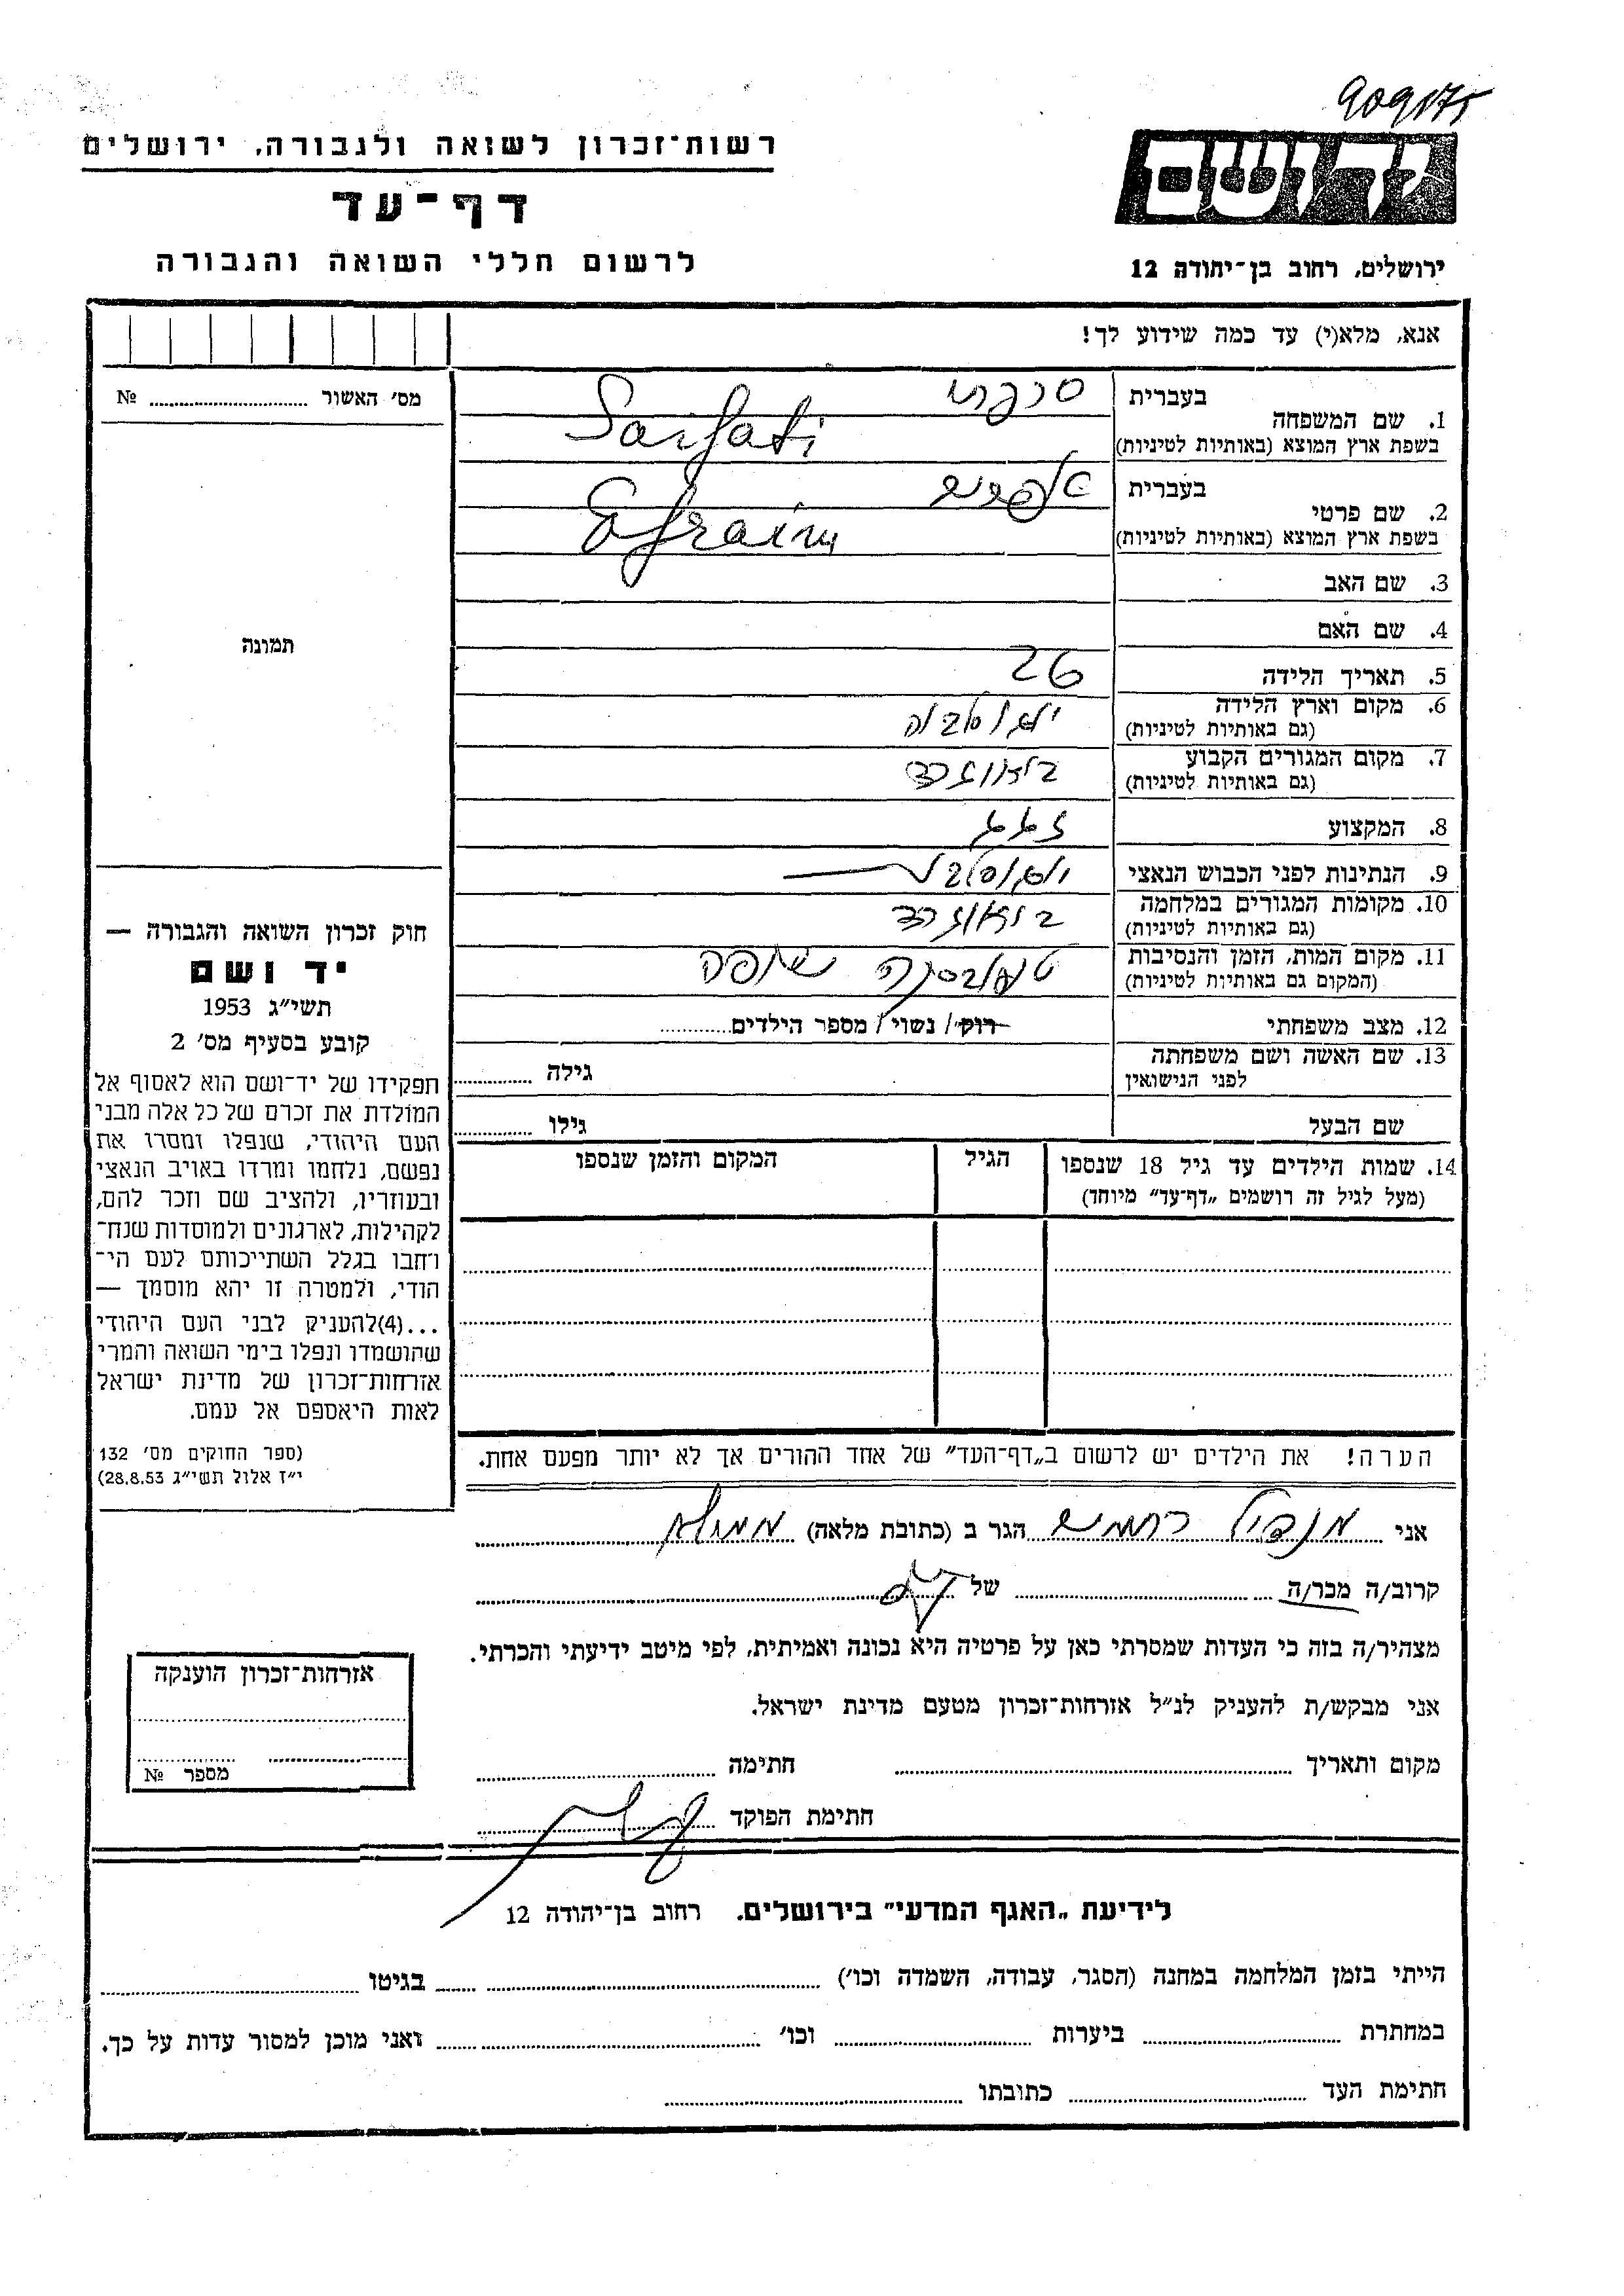 909175
ידושם
רשות־זכרון לשואה ולגבורה, ירושלים
דף־עד
לרשום חללי השואה והגבורה
ירושלים, רחוב בן־יהודה 12
אנא, מלא(י) עד כמה שידוע לך!
מס׳ האשור № 
1. שם המשפחה
בעברית סרפתי
בשפת ארץ המוצא (באותיות לטיניות) Sarfati
2. שם פרטי
בעברית אפרים
בשפת ארץ המוצא (באותיות לטיניות) Efraim
3. שם האב
4. שם האם
תמונה
5. תאריך הלידה 26
6. מקום וארץ הלידה
(גם באותיות לטיניות)
7. מקום המגורים הקבוע
(גם באותיות לטיניות) בלאוגרד
8. המקצוע
9. הנתינות לפני הכבוש הנאצי
10. מקומות המגורים במלחמה
(גם באותיות לטיניות)
11. מקום המות, הזמן והנסיבות
(המקום גם באותיות לטיניות)
12. מצב משפחתי רוק / נשוי / מספר הילדים
13. שם האשה ושם משפחתה
לפני הנישואין גילה
שם הבעל גילו
14. שמות הילדים עד גיל 18 שנספו
(מעל לגיל זה רושמים „דף־עד״ מיוחד)
הגיל
המקום והזמן שנספו
חוק זכרון השואה והגבורה —
יד ושם
תשי״ג 1953
קובע בסעיף מס׳ 2
תפקידו של יד־ושם הוא לאסוף אל
המולדת את זכרם של כל אלה מבני
העם היהודי, שנפלו ומסרו את
נפשם, נלחמו ומרדו באויב הנאצי
ובעוזריו, ולהציב שם וזכר להם,
לקהילות, לארגונים ולמוסדות שנח־
רחבו בגלל השתייכותם לעם הי־
הודי, ולמטרה זו יהא מוסמך —
...(4)להעניק לבני העם היהודי
שהושמדו ונפלו בימי השואה והמרי
אזרחות־זכרון של מדינת ישראל
לאות היאספם אל עמם.
(ספר החוקים מס׳ 132
י״ז אלול תשי״ג 28.8.53)
הערה! את הילדים יש לרשום ב„דף־העד״ של אחד ההורים אך לא יותר מפעם אחת.
אני מנדיל רחמים הגר ב (כתובת מלאה)
קרוב/ה מכר/ה של
מצהיר/ה בזה כי העדות שמסרתי כאן על פרטיה היא נכונה ואמיתית, לפי מיטב ידיעתי והכרתי.
אני מבקש/ת להעניק לנ״ל אזרחות־זכרון מטעם מדינת ישראל.
מקום ותאריך חתימה
חתימת הפוקד
אזרחות־זכרון הוענקה
מספר №
לידיעת „האגף המדעי״ בירושלים. רחוב בן־יהודה 12
הייתי בזמן המלחמה במחנה (הסגר, עבודה, השמדה וכו׳) בגיטו
במחתרת ביערות וכו׳ ואני מוכן למסור עדות על כך.
חתימת העד כתובתו